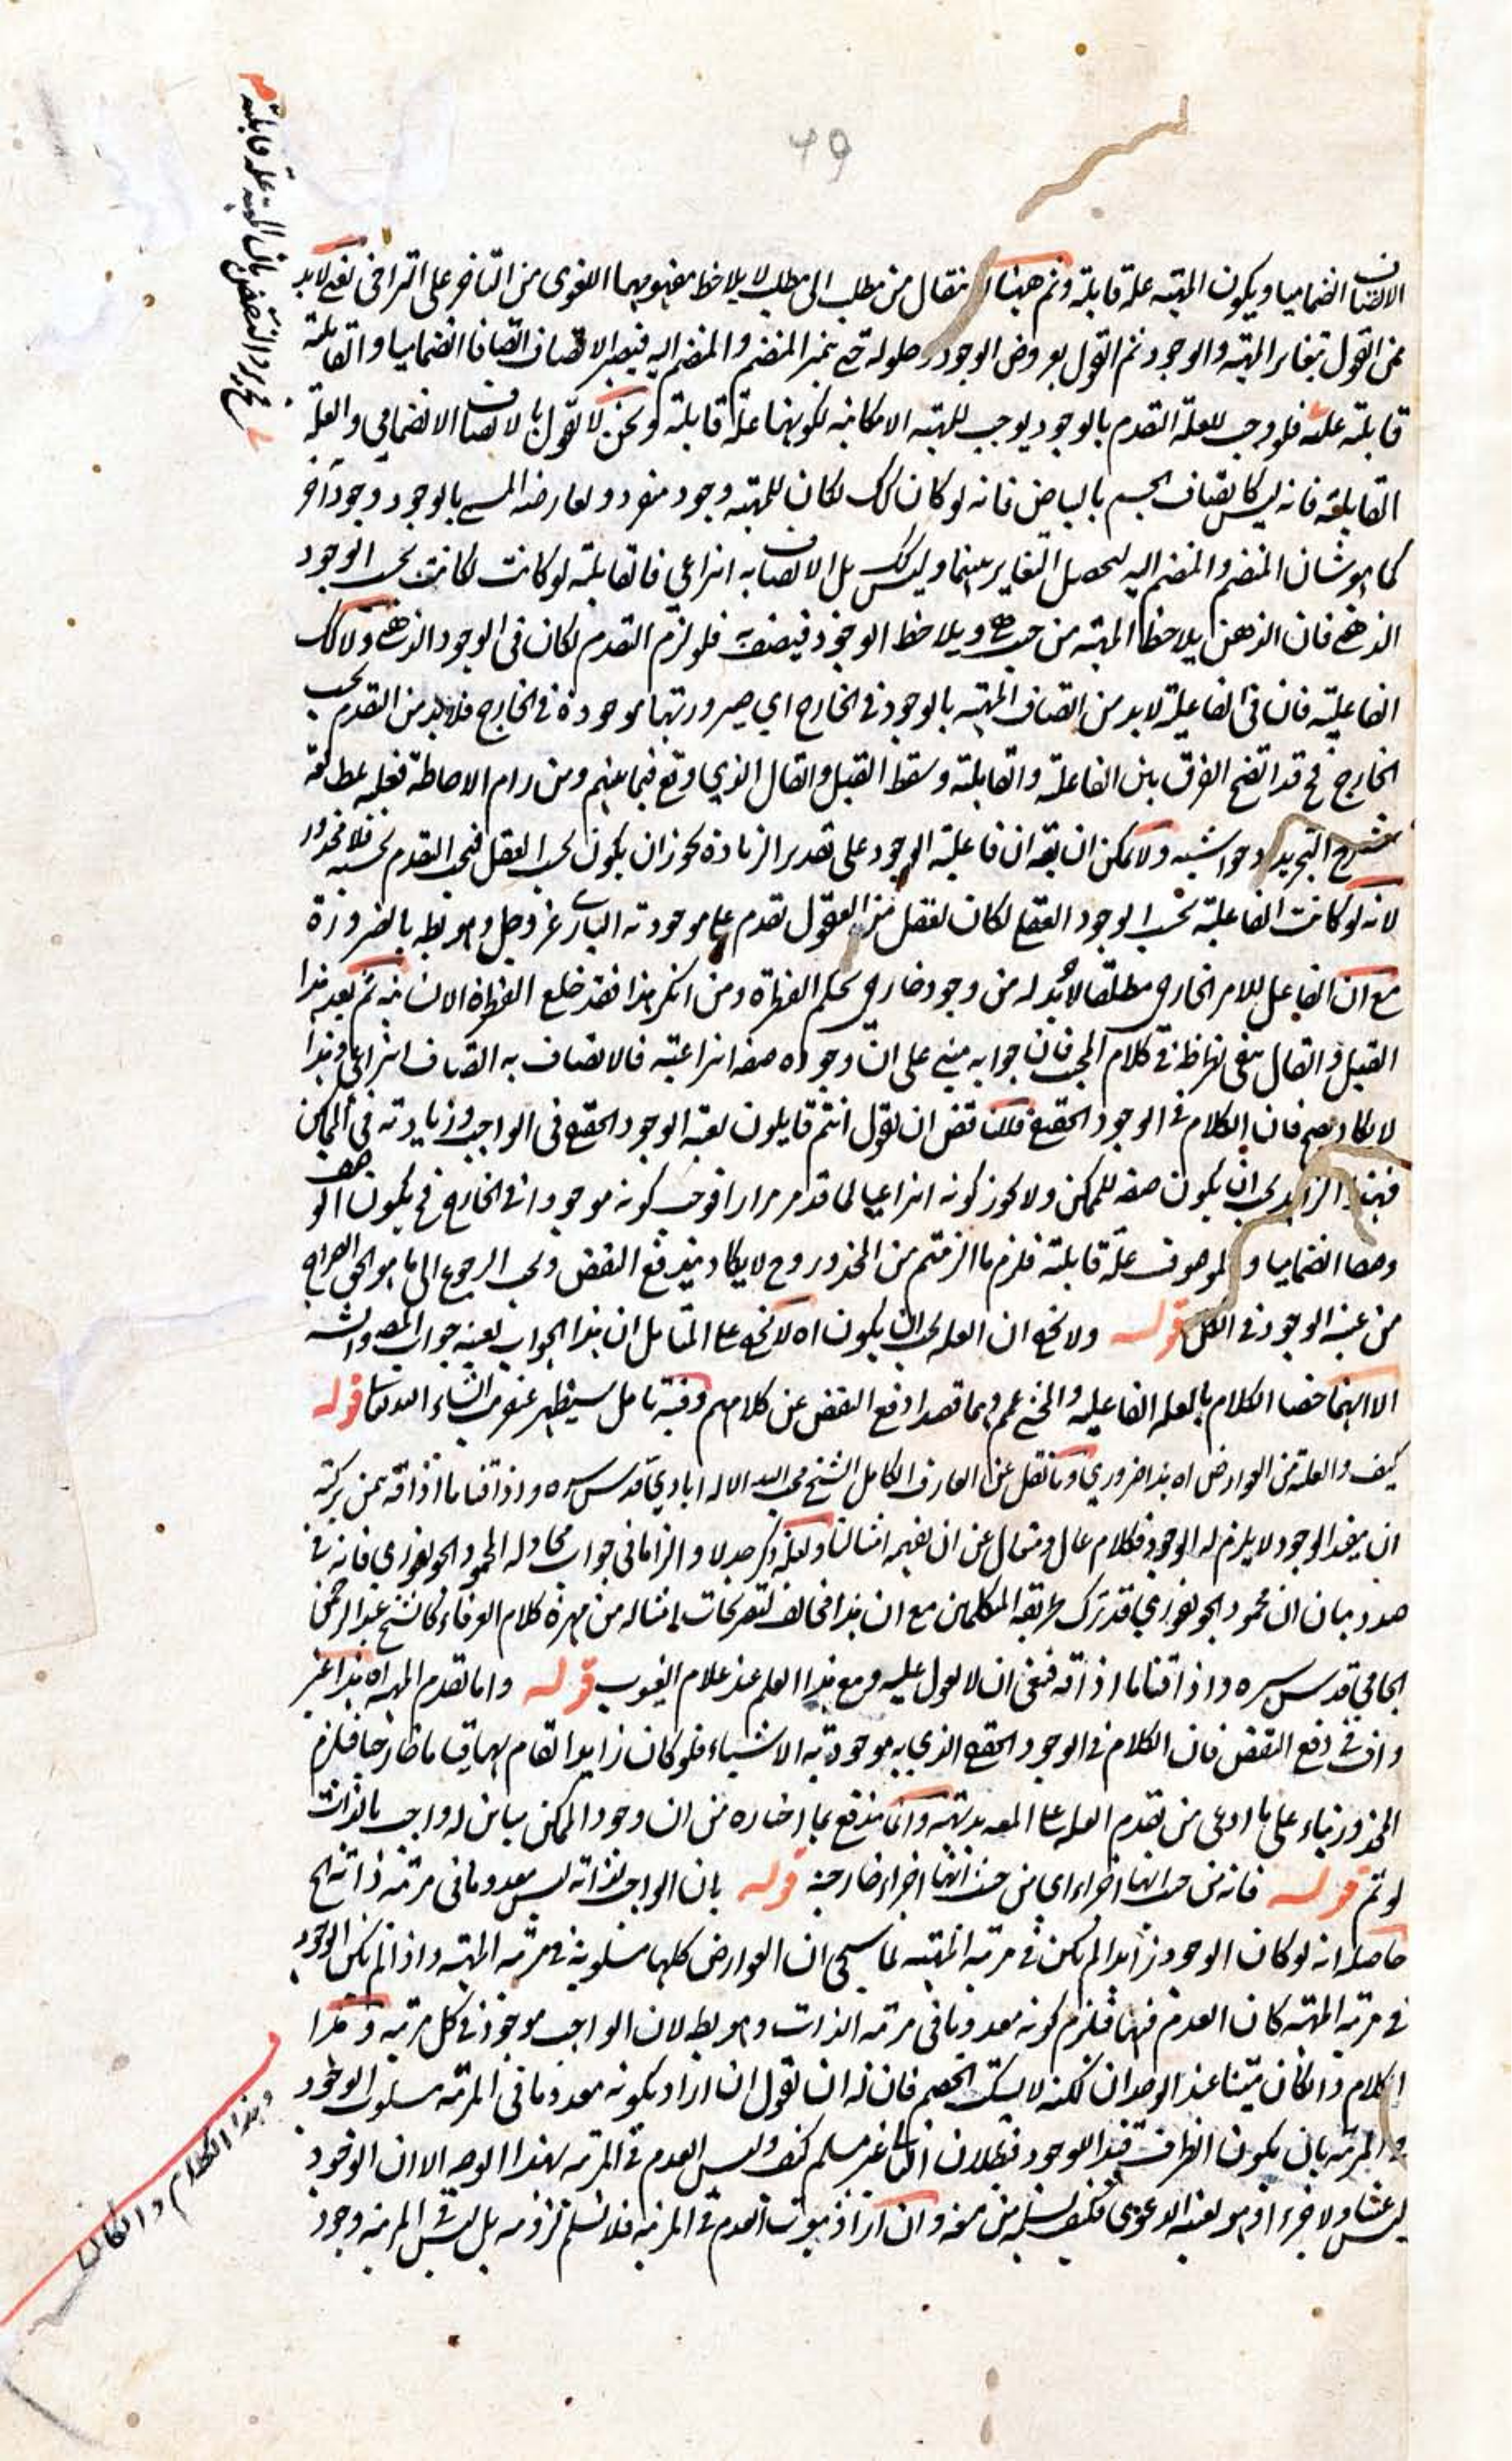 49
الاتصاف انضماميا ويكون المهية علة قابلة وثم ههنا انتقال من مطلب الى مطلب لا يلاحظ مفهومهما اللغوى من التاخر على التراخى نعم لابد
من القول بتغاير المهية والوجود ثم القول بعروض الوجود وحلوله حتى يتميز المنضم والمنضم اليه فيصير الاتصاف اتصافا انضماميا والقابلية
قابلية علته فلو وجب للعلة التقدم بالوجود يوجب للمهية الامكانية لكونها علة قابلة ونحن لا نقول بالاتصاف الانضمامي والعلة
القابلة فانه ليس كاتصاف الجسم بالبياض فانه لو كان كذلك لكان للمهية وجود منفرد ولعارضه المسمى بالوجود وجود آخر
كما هو شان المنضم والمنضم اليه ليحصل التغاير بينهما وليس كذلك بل الاتصاف به انتزاعي فالقابلية لو كانت لكانت بحسب الوجود
الذهني فان الذهن يلاحظ المهية من حيث هي ويلاحظ الوجود فيصفه به فلو لزم التقدم لكان فى الوجود الذهني ولا كذلك
الفاعلية فان فى الفاعلية لابد من اتصاف المهية بالوجود فى الخارج اي صيرورتها موجودة فى الخارج فلابد من التقدم بحسب
الخارج فح قد اتضح الفرق بين الفاعلة والقابلة وسقط القيل والقال الذي وقع فيما بينهم ومن رام الاحاطة فعليه بمطالعة
شرح التجريد وحواشيه ولا يمكن ان يقه ان فاعلية الوجود على تقدير الزيادة يجوز ان يكون بحسب العقل فيجب التقدم بحسبه فلا محذور
لانه لو كانت الفاعلية بحسب الوجود العقلي لكان لعقل من العقول تقدم على موجودية الباري عز وجل وهو بط بالضرورة
مع ان الفاعل للامر الخارجي مطلقا لابد له من وجود خارجي بحكم الفطرة ومن انكر هذا فقد خلع الفطرة الانسانية ثم بعد هذا
القيل والقال بقى نظر في كلام المجيب فان جوابه مبني على ان وجوده صفة انتزاعية فالاتصاف به اتصاف انتزاعي وهذا
لا يكاد يصح فان الكلام فى الوجود الحقيقي فللناقض ان يقول انتم قايلون بعينية الوجود الحقيقي فى الواجب وزيادته فى الممكن
فهذا الزايد يجب ان يكون صفة للممكن ولا يجوز كونه انتزاعيا لما قد مر مرارا فوجب كونه موجودا فى الخارج فح يكون الوصف
وصفا انضماميا والموصوف علة قابلة فلزم ما الزمتم من المحذور وح لا يكاد يندفع النقض ويجب الرجوع الى ما هو الحق الصراح
من عينية الوجود فى الكل قوله ولا يخفى ان العلة يجب ان يكون اه لا يخفى على المتامل ان هذا الجواب بعينه جواب المص والش
الا انهما خصا الكلام بالعلة الفاعلية والمحشي عمم وهما قصدا دفع النقض عن كلامهم وفيه تامل سيظهر عنقريب انشاء الله تعالى قوله
كيف والعلة من العوارض اه هذا ضروري وما نقل عن العارف الكامل الشيخ محب الله الاله ابادي قدس سره واذاقنا ما اذاقه بمن بركته
ان مفيد الوجود لا يلزم له الوجود فكلام عال ومتعال عن ان يفهمه امثالنا ولعله ذكر جدلا والزاما فى جواب مجادلة المحمود الجونفوري فانه فى
صدد بيان ان محمود الجونفوري قد ترك طريقة المتكلمين مع ان هذا مخالف لتصريحات امثاله من مهرة كلام العرفاء كالشيخ عبد الرحمن
الجامي قدس سره واذاقنا ما اذاقه فينبغى ان لا يعول عليه ومع هذا العلم عند علام الغيوب قوله واما تقدم المهية اه هذا غير
واف فى دفع النقض فان الكلام فى الوجود الحقيقي الذي به موجودية الاشياء فلو كان زايدا لقام بها قياما خارجيا فلزم
المحذور بناء على ما ادعى من تقدم العلة على المعلول بديهته وانما يندفع بما اختاره من ان وجود الممكن مباين له واجب بالذات
لو تم قوله فانه من حيث انها اجزاء اى من حيث انها اجزاء خارجية قوله بان الواجب لذاته ليس معدوما فى مرتبة ذاته الخ
حاصله انه لو كان الوجود زايدا لم يكن فى مرتبة المهية لما سيجئ ان العوارض كلها مسلوبة فى مرتبة المهية واذا لم يكن الوجود
فى مرتبة المهية كان العدم فيها فيلزم كونه معدوما فى مرتبة الذات وهو بط لان الواجب موجود فى كل مرتبة وهذا
الكلام وان كان متينا عند الوجدان لكنه لا يسكت الخصم فان له ان يقول ان اراد بكونه معدوما فى المرتبة مسلوب الوجود
فى المرتبة بان يكون الظرف قيدا للوجود فبطلان التالى غير مسلم كيف وليس العدم فى المرتبة بهذا الوجه الا ان الوجود
ليس عينا ولا جزءا وهو بعينه الدعوى فكيف يسلمه من منعه وان اراد ثبوت العدم فى المرتبة فلا نسلم لزومه بل ليس فى المرتبة وجود
وهذا الكلام وان كان